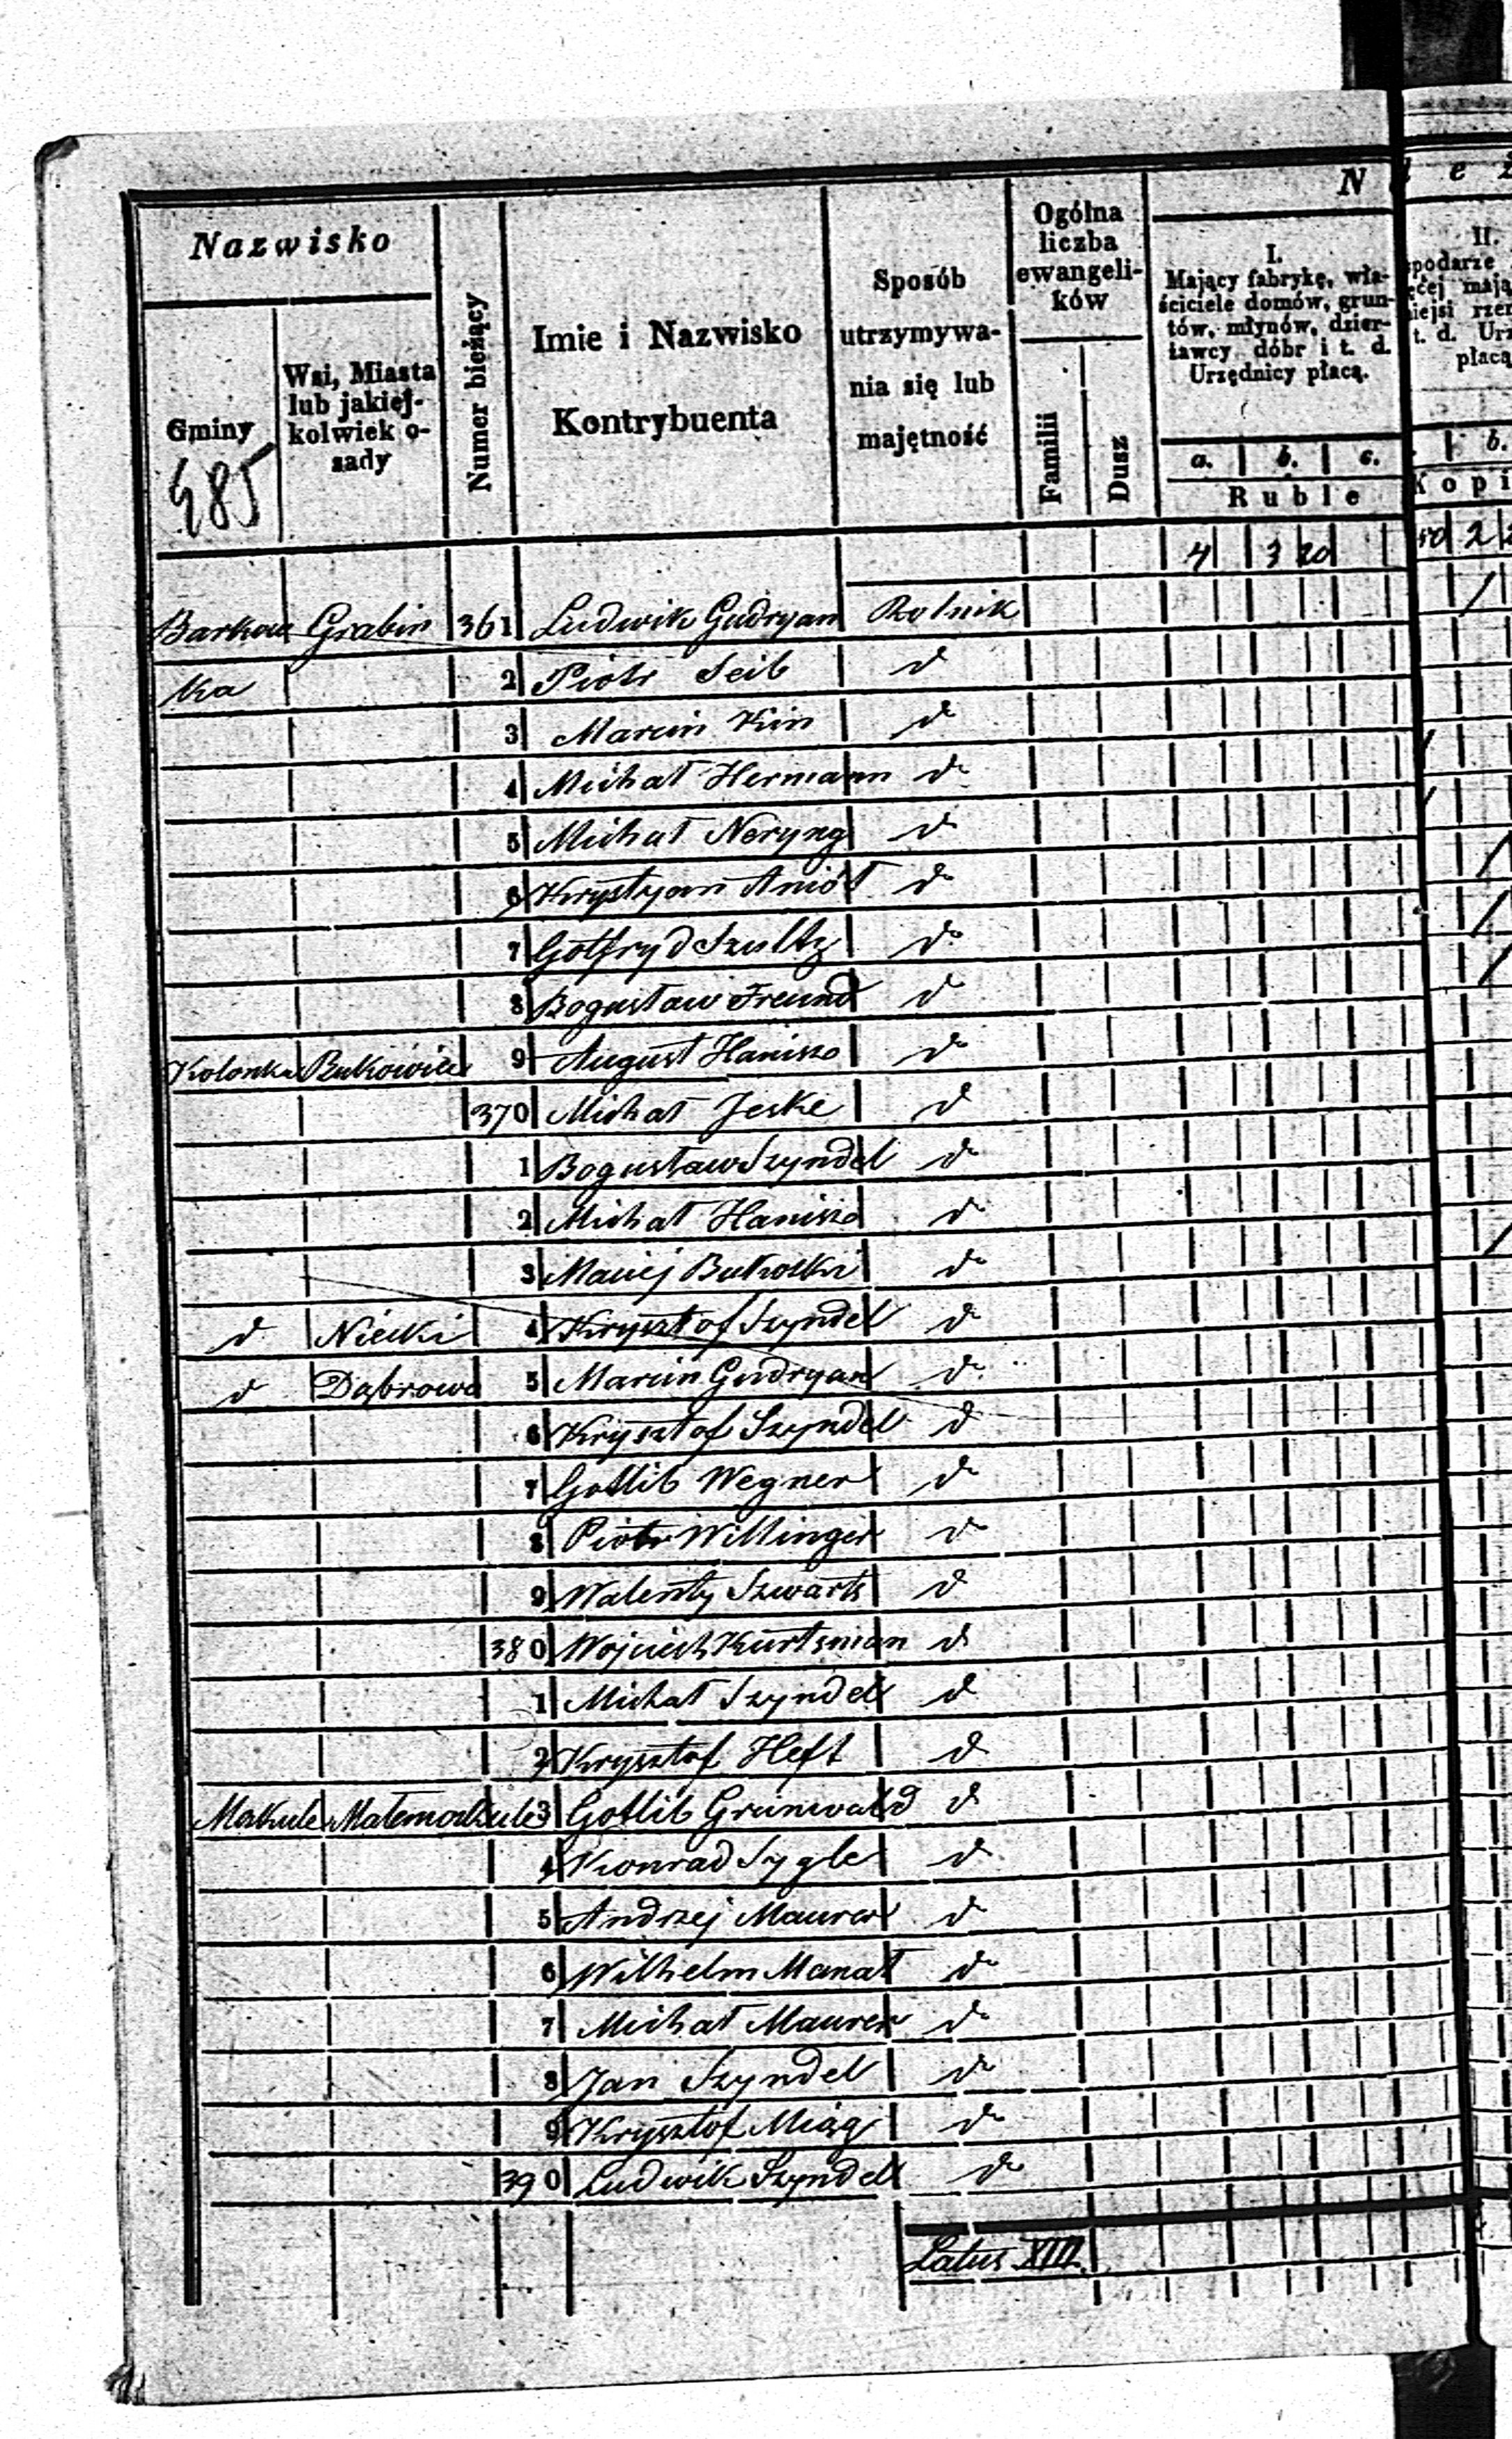 N
Nazwisko
Gminy
Wsi, Miasta
lub jakiej-
kolwiek o-
sady
Numer bieżący
Imie i Nazwisko
Kontrybuenta
Sposób
utrzymywa-
nia się lub
majętność
Ogólna
liczba
ewangeli-
ków
Familii
Dusz
I.
Mający fabrykę, wła-
ściciele domów, grun-
tów, młynów, dzier-
ławcy dóbr i t. d.
Urzędnicy płacą.
a. b. c.
Ruble
II.
b.
485
4 3 20 50 2
Barkow Grabin 361 Ludwik Gudryan Rolnik
ka 2 Piotr Seib d
3 Marcin Kin do
4 Michał Hermann do
5 Michał Neryng do
6 Krystyan Anioł do
7 Gotfryd Szultz do
8 Bogusław Freund d
Kolonka Bukowiec 9 August Hanisz do
370 Michał Jeske d
1 Bogusław Szyndel do
2 Michał Hanisz do
3 Maciej Bukolki do
d Niecki 4 Krysztof Szyndel d
d Dąbrowa 5 Marcin Gudryan do
6 Krysztof Szyndel d
7 Gotlib Wegner do
8 Piotr Willinger do
9 Walenty Szwartz d
380 Wojciech Kurtsman d
1 Michał Szyndel d
2 Krysztof Heft d
Makule Małemakule 3 Gotlib Grunwald d
4 Konrad Sygle d
5 Andrzej Maurer do
6 Wilhelm Manat do
7 Michał Maurer do
8 Jan Szyndel do
9 Krysztof Miszg do
390 Ludwik Szyndel do
Latus XIII.